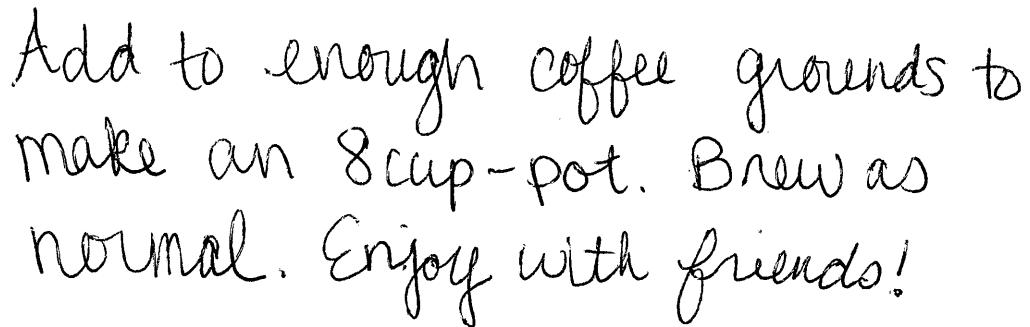 Add to enough coffee grounds to
make an 8cup-pot. Brew as
normal. Enjoy with friends!